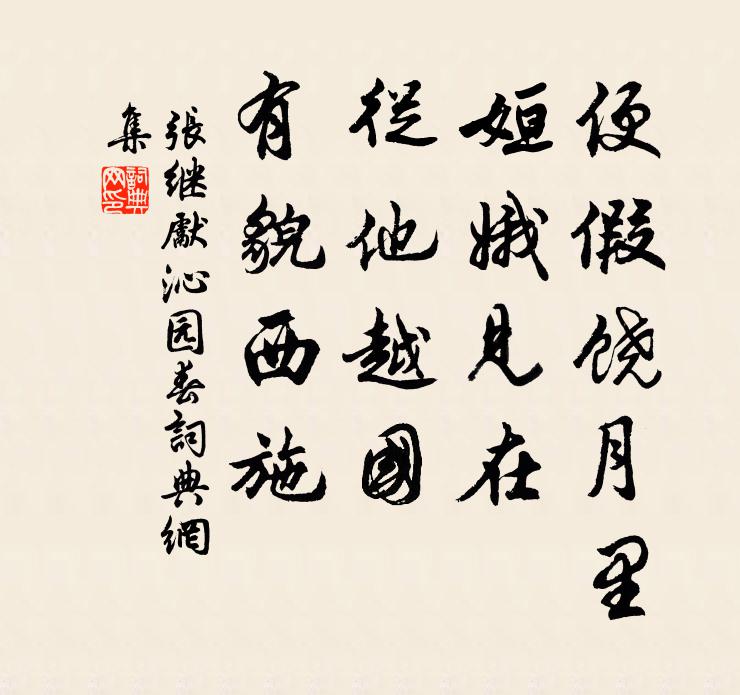 便假饶月里
姮娥见在
從他越國
有貌西施
張继獻沁园春詞典網
集
詞典
网印